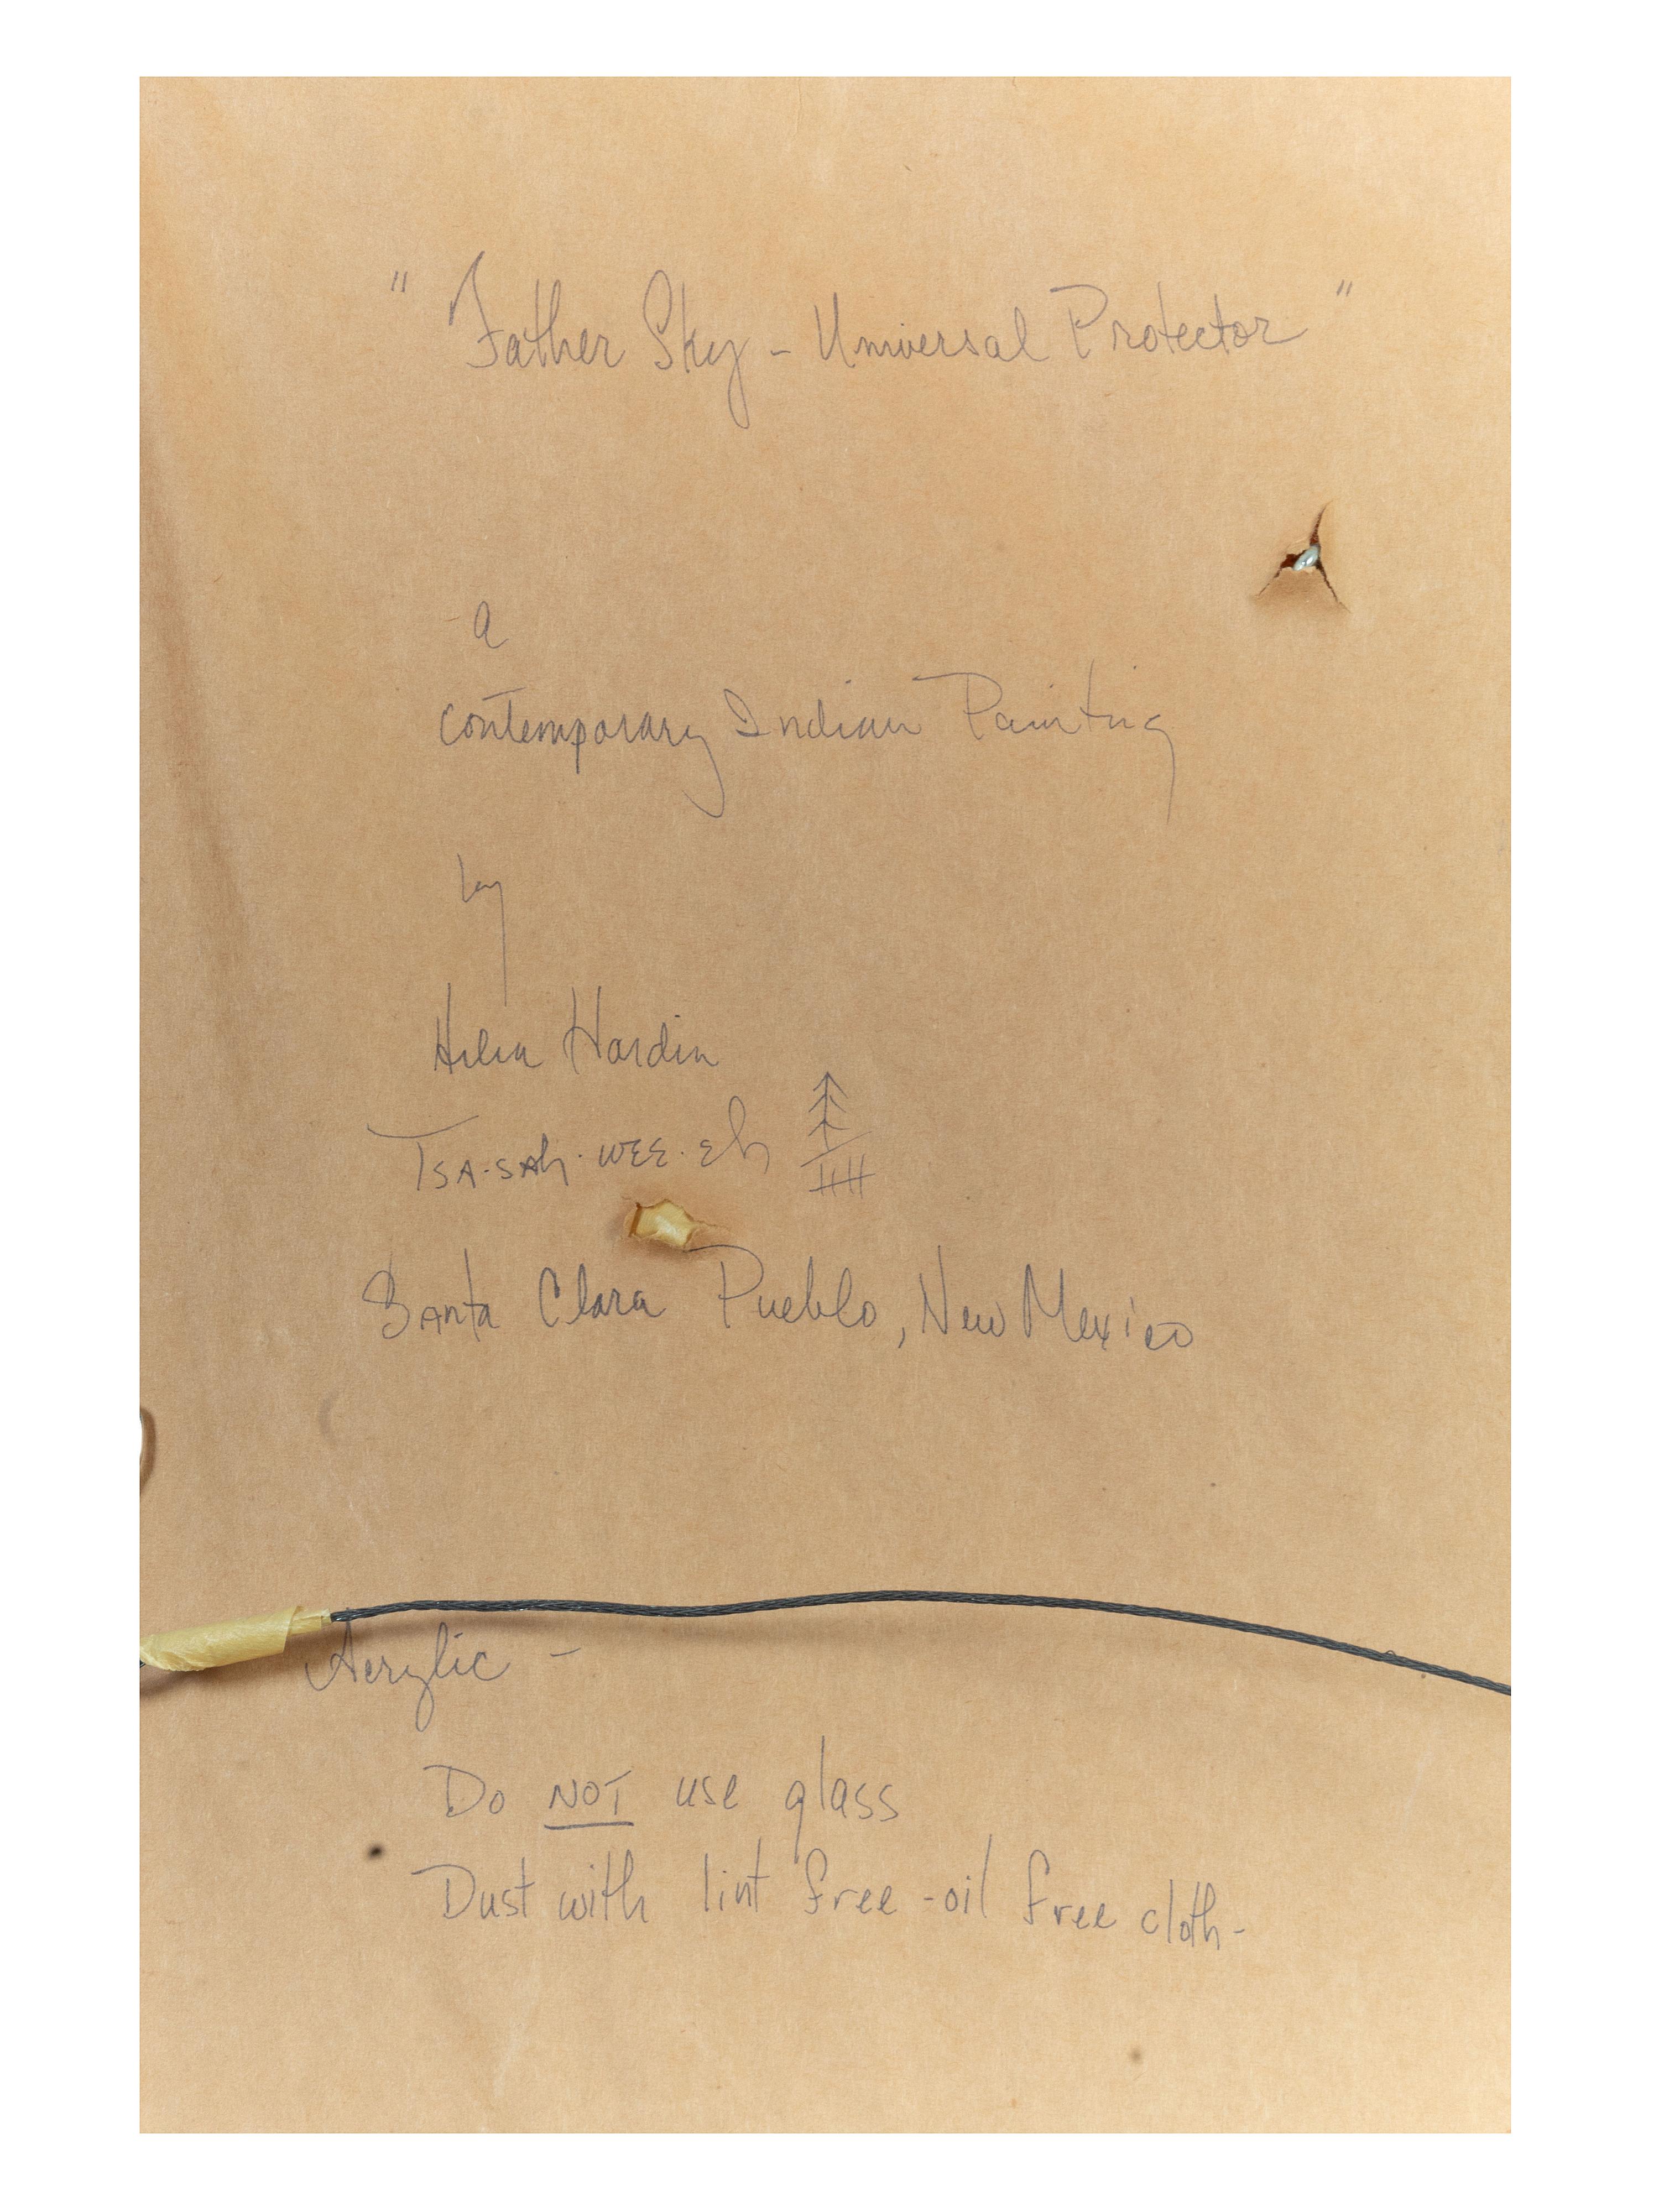 " Father Sky - Universal Protector "
a
contemporary Indian Painting
by
Helen Hardin
Tsa-sah-wee-eh
Santa Clara Pueblo, New Mexico
Acrylic -
Do NOT use glass
Dust with lint free - oil free cloth -